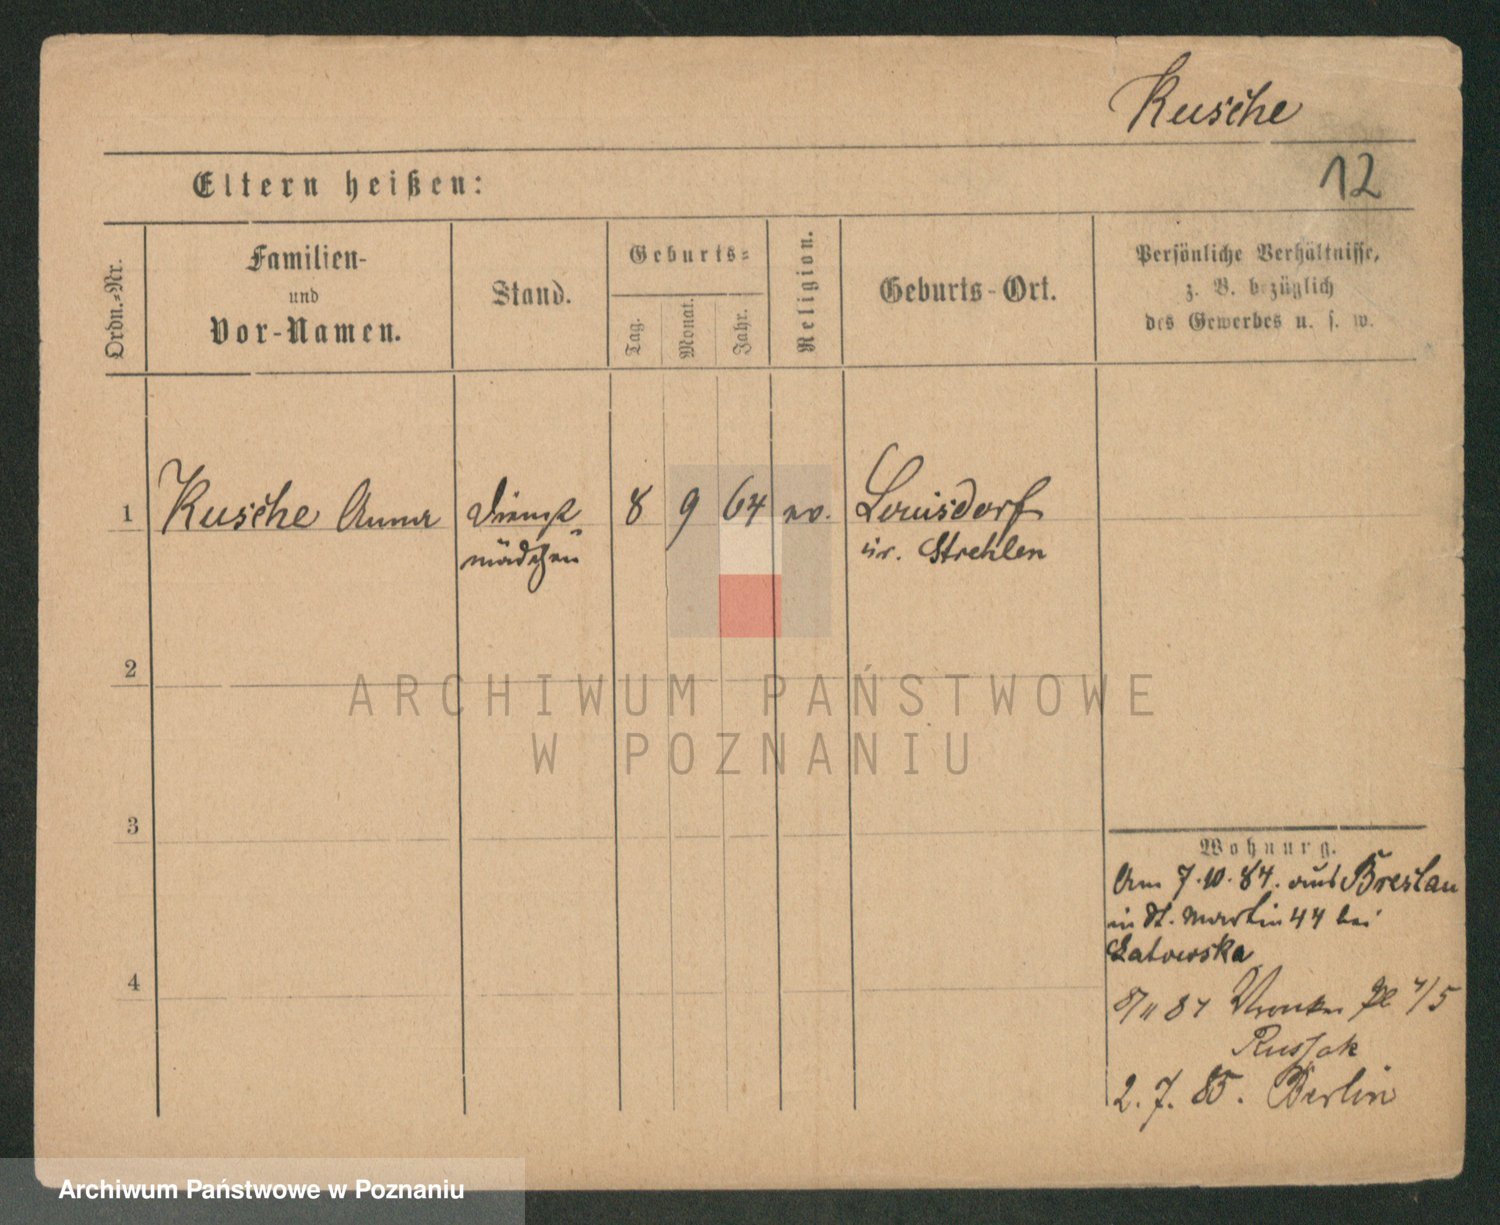 Kusche
12
Eltern heißen:
Ordn.=Nr.
Familien-
und
Vor-Namen.
Stand.
Geburts=
Tag.
Monat.
Jahr.
Religion.
Geburts-Ort.
Persönliche Verhältnisse,
z. B. bezüglich
des Gewerbes u. s. w.
1 Kusche Anna Dienst 8 9 64 ev. Louisdorf
mädchen Kr. Strehlen
2
ARCHIWUM PAŃSTWOWE
W POZNANIU
3
Wohnung.
Am 7.10.84. aus Breslau
in St. Martin 44 bei
4
8/11 84 Wronker Pl 4/5
Russak
2.7.85. Berlin
Archiwum Państwowe w Poznaniu